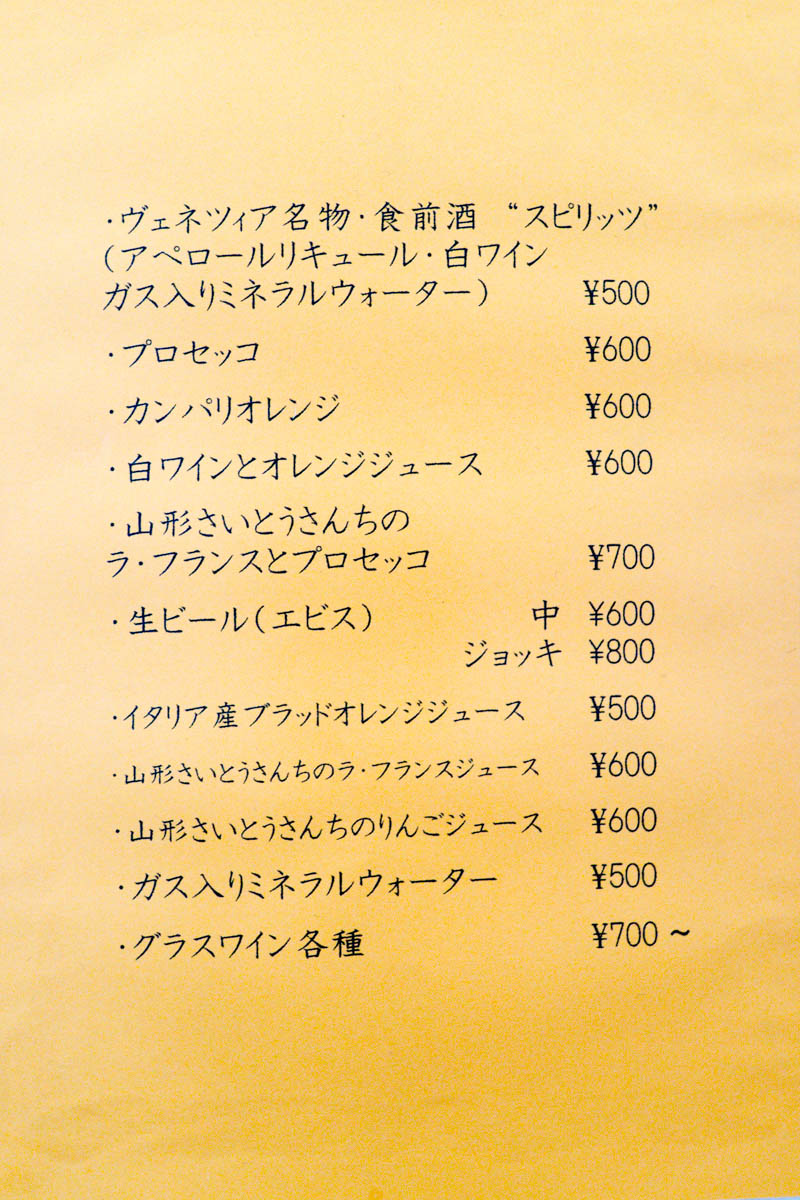 ・ヴェネツィア名物・食前酒 “スピリッツ”
(アペロールリキュール・白ワイン
ガス入りミネラルウォーター) ¥500
・プロセッコ ¥600
・カンパリオレンジ ¥600
・白ワインとオレンジジュース ¥600
・山形さいとうさんちの
ラ・フランスとプロセッコ ¥700
・生ビール(エビス) 中 ¥600
ジョッキ ¥800
・イタリア産ブラッドオレンジジュース ¥500
・山形さいとうさんちのラ・フランスジュース ¥600
・山形さいとうさんちのりんごジュース ¥600
・ガス入りミネラルウォーター ¥500
・グラスワイン各種 ¥700～